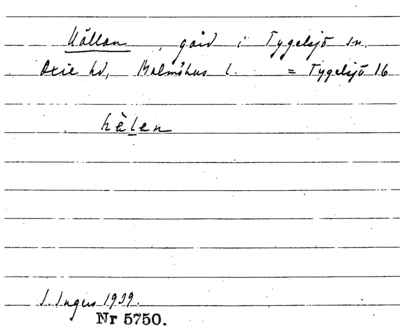 Källan, gård i Tygelsjö sn.
Oxie hd, Malmöhus l. = Tygelsjö 16
hèlen
S. Ingers 1939.
Nr 5750.